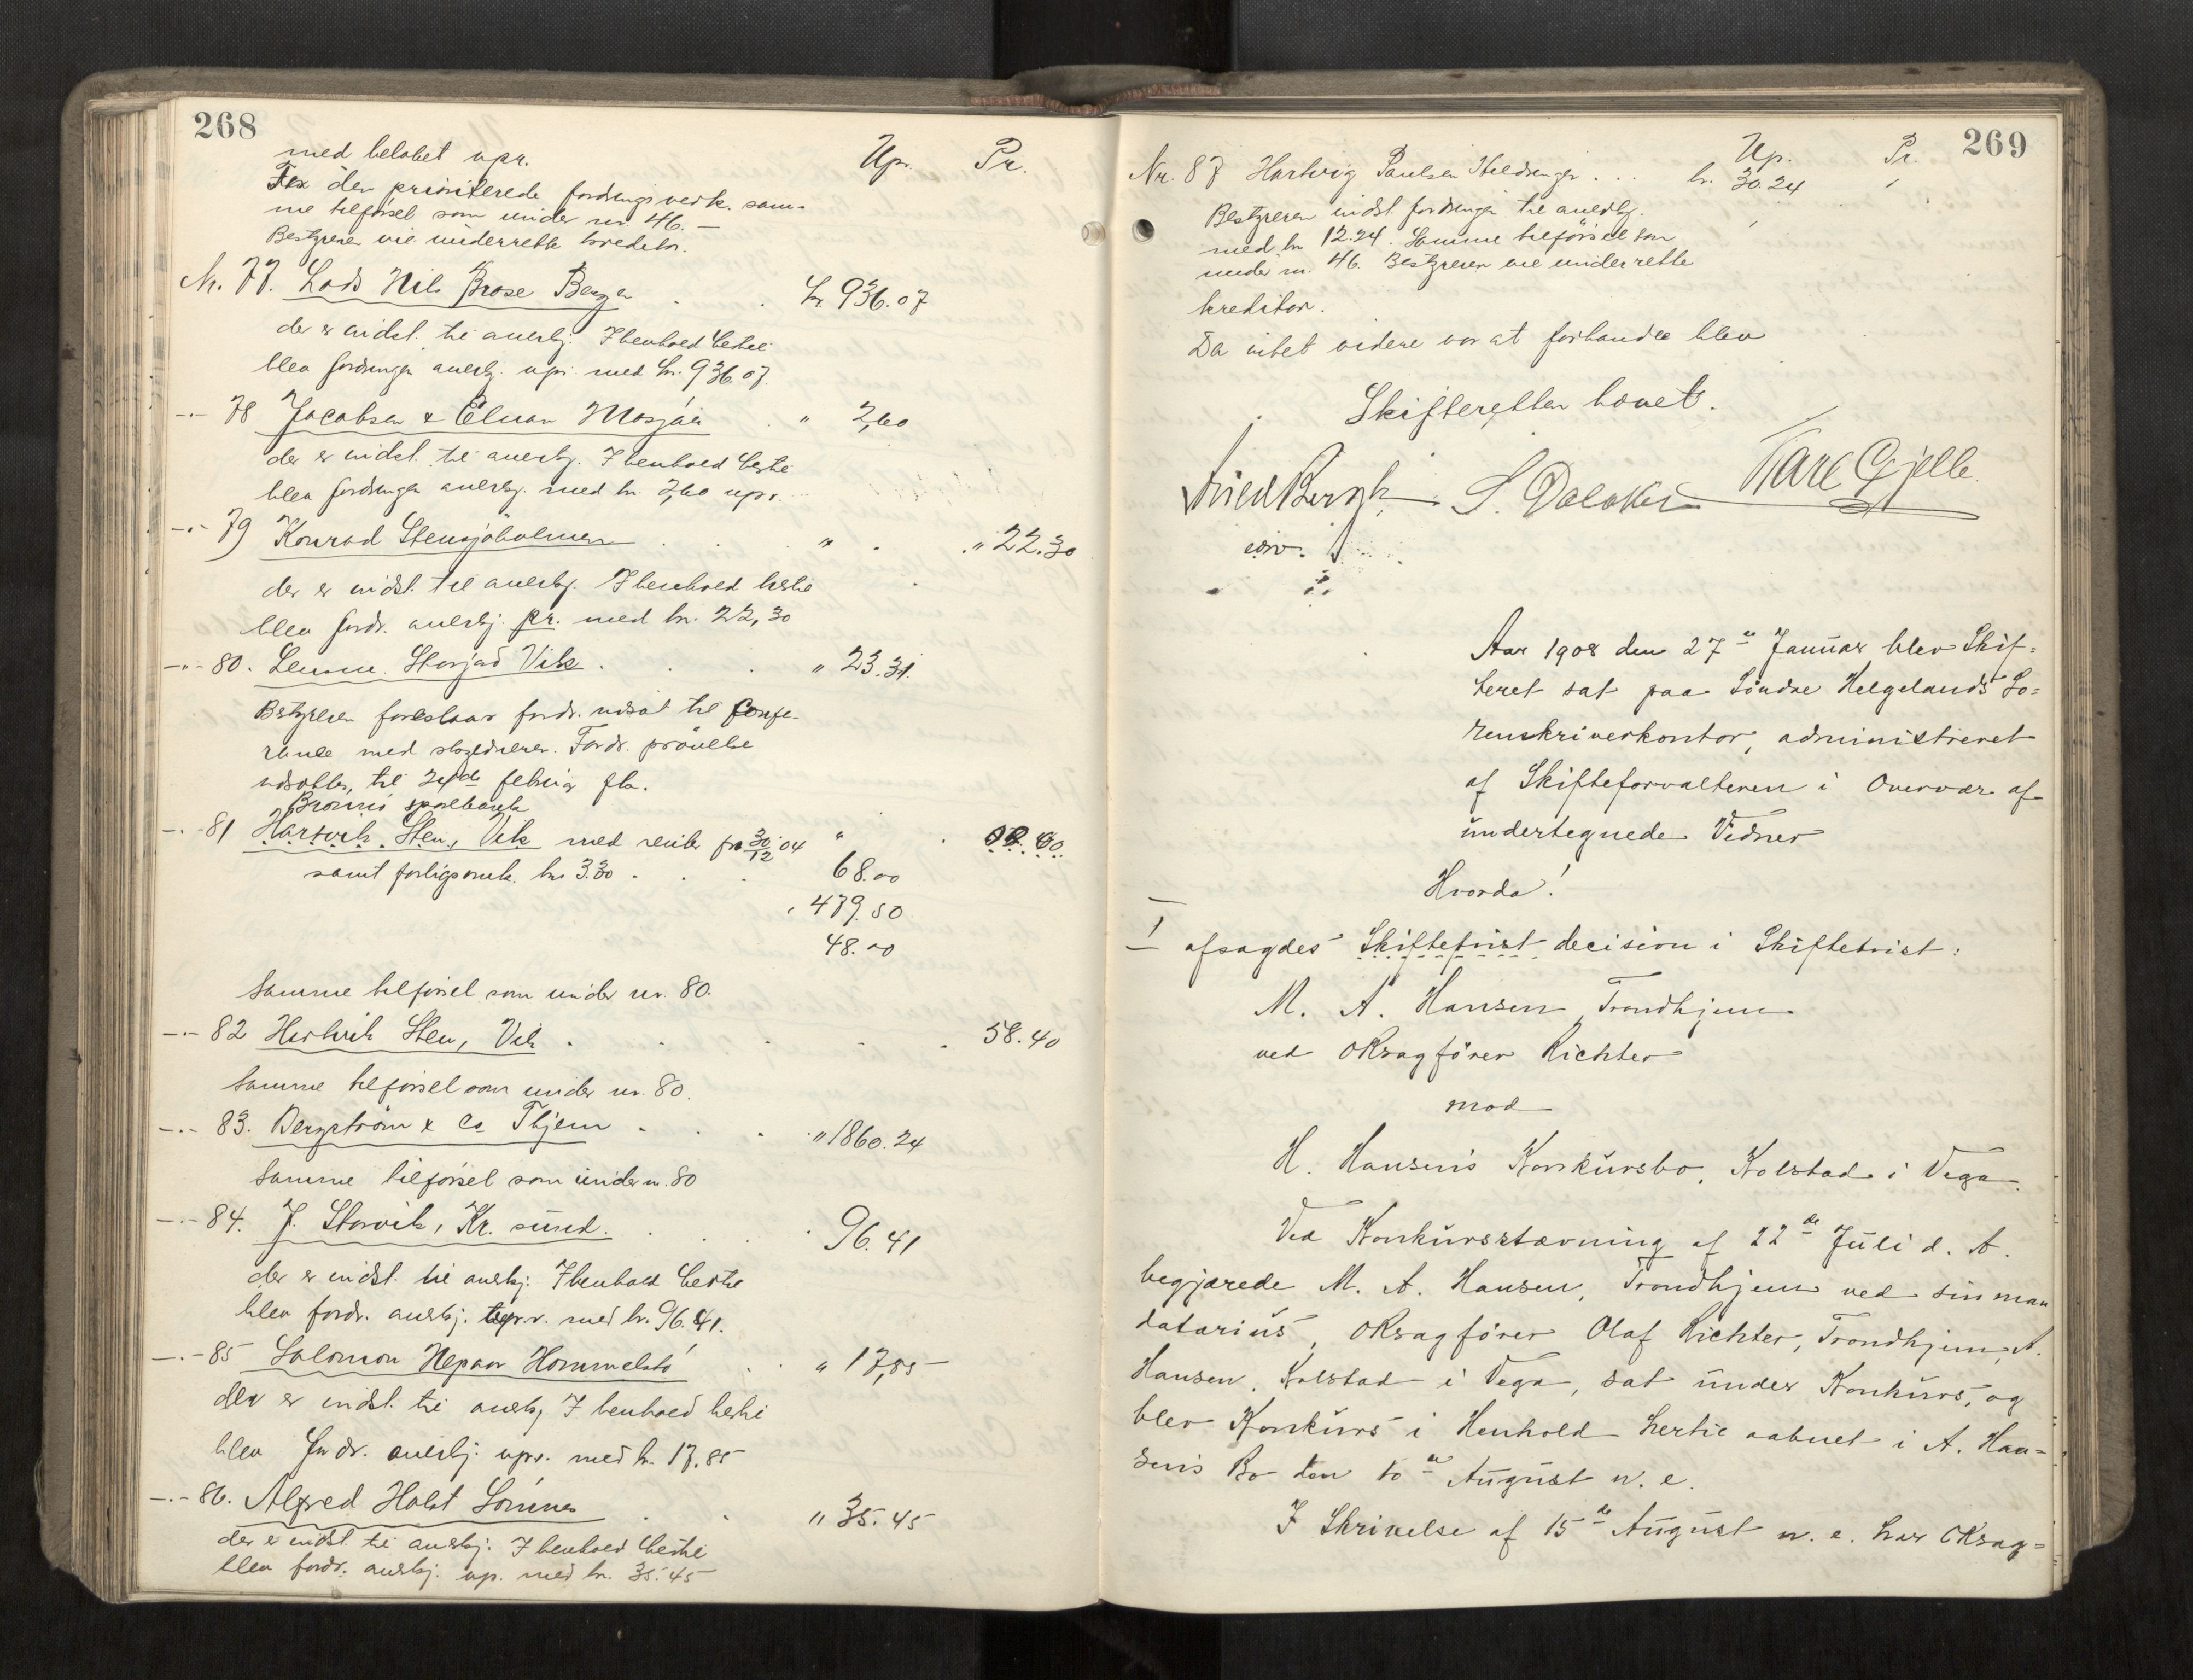 268
med beløbet upr. Upr. Pr.
For den prioriterede fordrings vedk. sam-
me tilførsel som under nr 46. —
Bestyreren vil underrette kreditor.
Nr. 77. Lods Nils Brose Berg kr 936.07
der er indst. til anerkj. I henhold hertil
blev fordringen anerkj. upr. med kr. 936.07.
-"- 78 Jacobsen & Elnan Mosjøen " 2,60
der er indst. til anerkj. I henhold hertil
blev fordringen anerkj. med kr. 2,60 upr.
-"- 79 Konrad Stensjøholmen " . " 22.30
der er indst til anerkj. I henhold hertil
blev fordr. anerkj. pr. med kr. 22,30
-"- 80. Storjord Vik " 23.31.
Bstyreren foreslaar fordr. udsat til Confe-
rance med skyldneren. Fordr. prøvelse
udsættes, til 24de februar
Brønnø sparebank
-"- 81 Hartvik Sten, Vik med renter fra 30/12 04 "
samt forligsomk. kr 3.30 . 68.00
" 479.50
48.00
Samme tilførsel som under nr. 80.
-"- 82 Hartvik Sten, Vik . 58.40
Samme tilførsel som under nr. 80.
-"- 83. Bergström & Co Thjem . " 1860.24
Samme tilførsel som under nr. 80
-"- 84. J. Storvik, Kr. sund. 96.41
der er indst. til anerkj. I henhold hertil
blev fordr. anerkj. upr. med kr. 96.41.
-"- 85 Salomon Nepaar Hommelstø " 17,85
der er indst. til anerkj I henhold hertil
blev fordr. anerkj. upr. med kr. 17.85
-"- 86. Alfred Holst Sømnes " 35.45
der er indst. til anerkj. I henhold hertil
blev fordr. anerkj. up. med kr. 35.45
269
Up. Pr.
Nr. 87 Hartvig Paulsen Hildringen . . . kr. 30.24
Bestyreren indst fordringen til anerkj.
med kr 12.24. Samme tilførsel som
under nr. 46. Bestyreren vil underrette
kreditor.
Da intet videre var at forhandle blev
Skifteretten hævet.
S. Dalaker Kare Gjelle
Aar 1908 den 27de Januar blev Skif-
teret sat paa Söndre Helgelands So-
renskriverkontor, administreret
af Skifteforvalteren i Overvær af
undertegnede Vidner
Hvorda!
I afsagdes Skiftetvist decision i Skiftetvist:
M. A. Hansen, Trondhjem
ved OKsagförer Richter
mod
H. Hansens Konkursbo, Kolstad i Vega.
Ved Konkursstævning af 22de Juli d. A.
begjærede M. A. Hansen, Trondhjem ved sin man
datarius, OKsagförer Olaf Richter, Trondhjem, A.
Hansen, Kolstad i Vega, sat under Konkurs, og
blev Konkurs i Henhold hertil aabnet i A. Han-
sens Bo den 10de August n. e.
I Skrivelse af 15de August n. e. har OKsag-